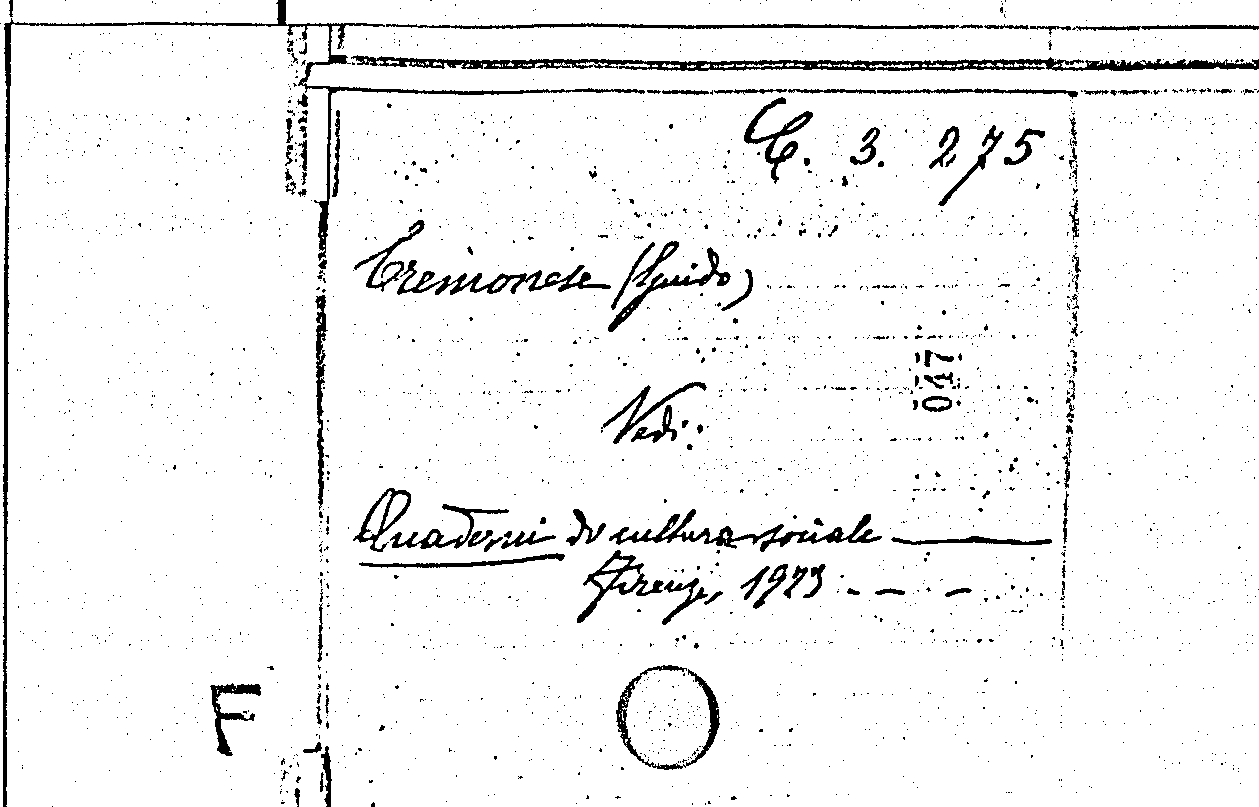 C. 3. 275
Cremonese (Guido)
047
Vedi:
Quaderni di cultura sociale ——
Firenze, 1923 . — —
F